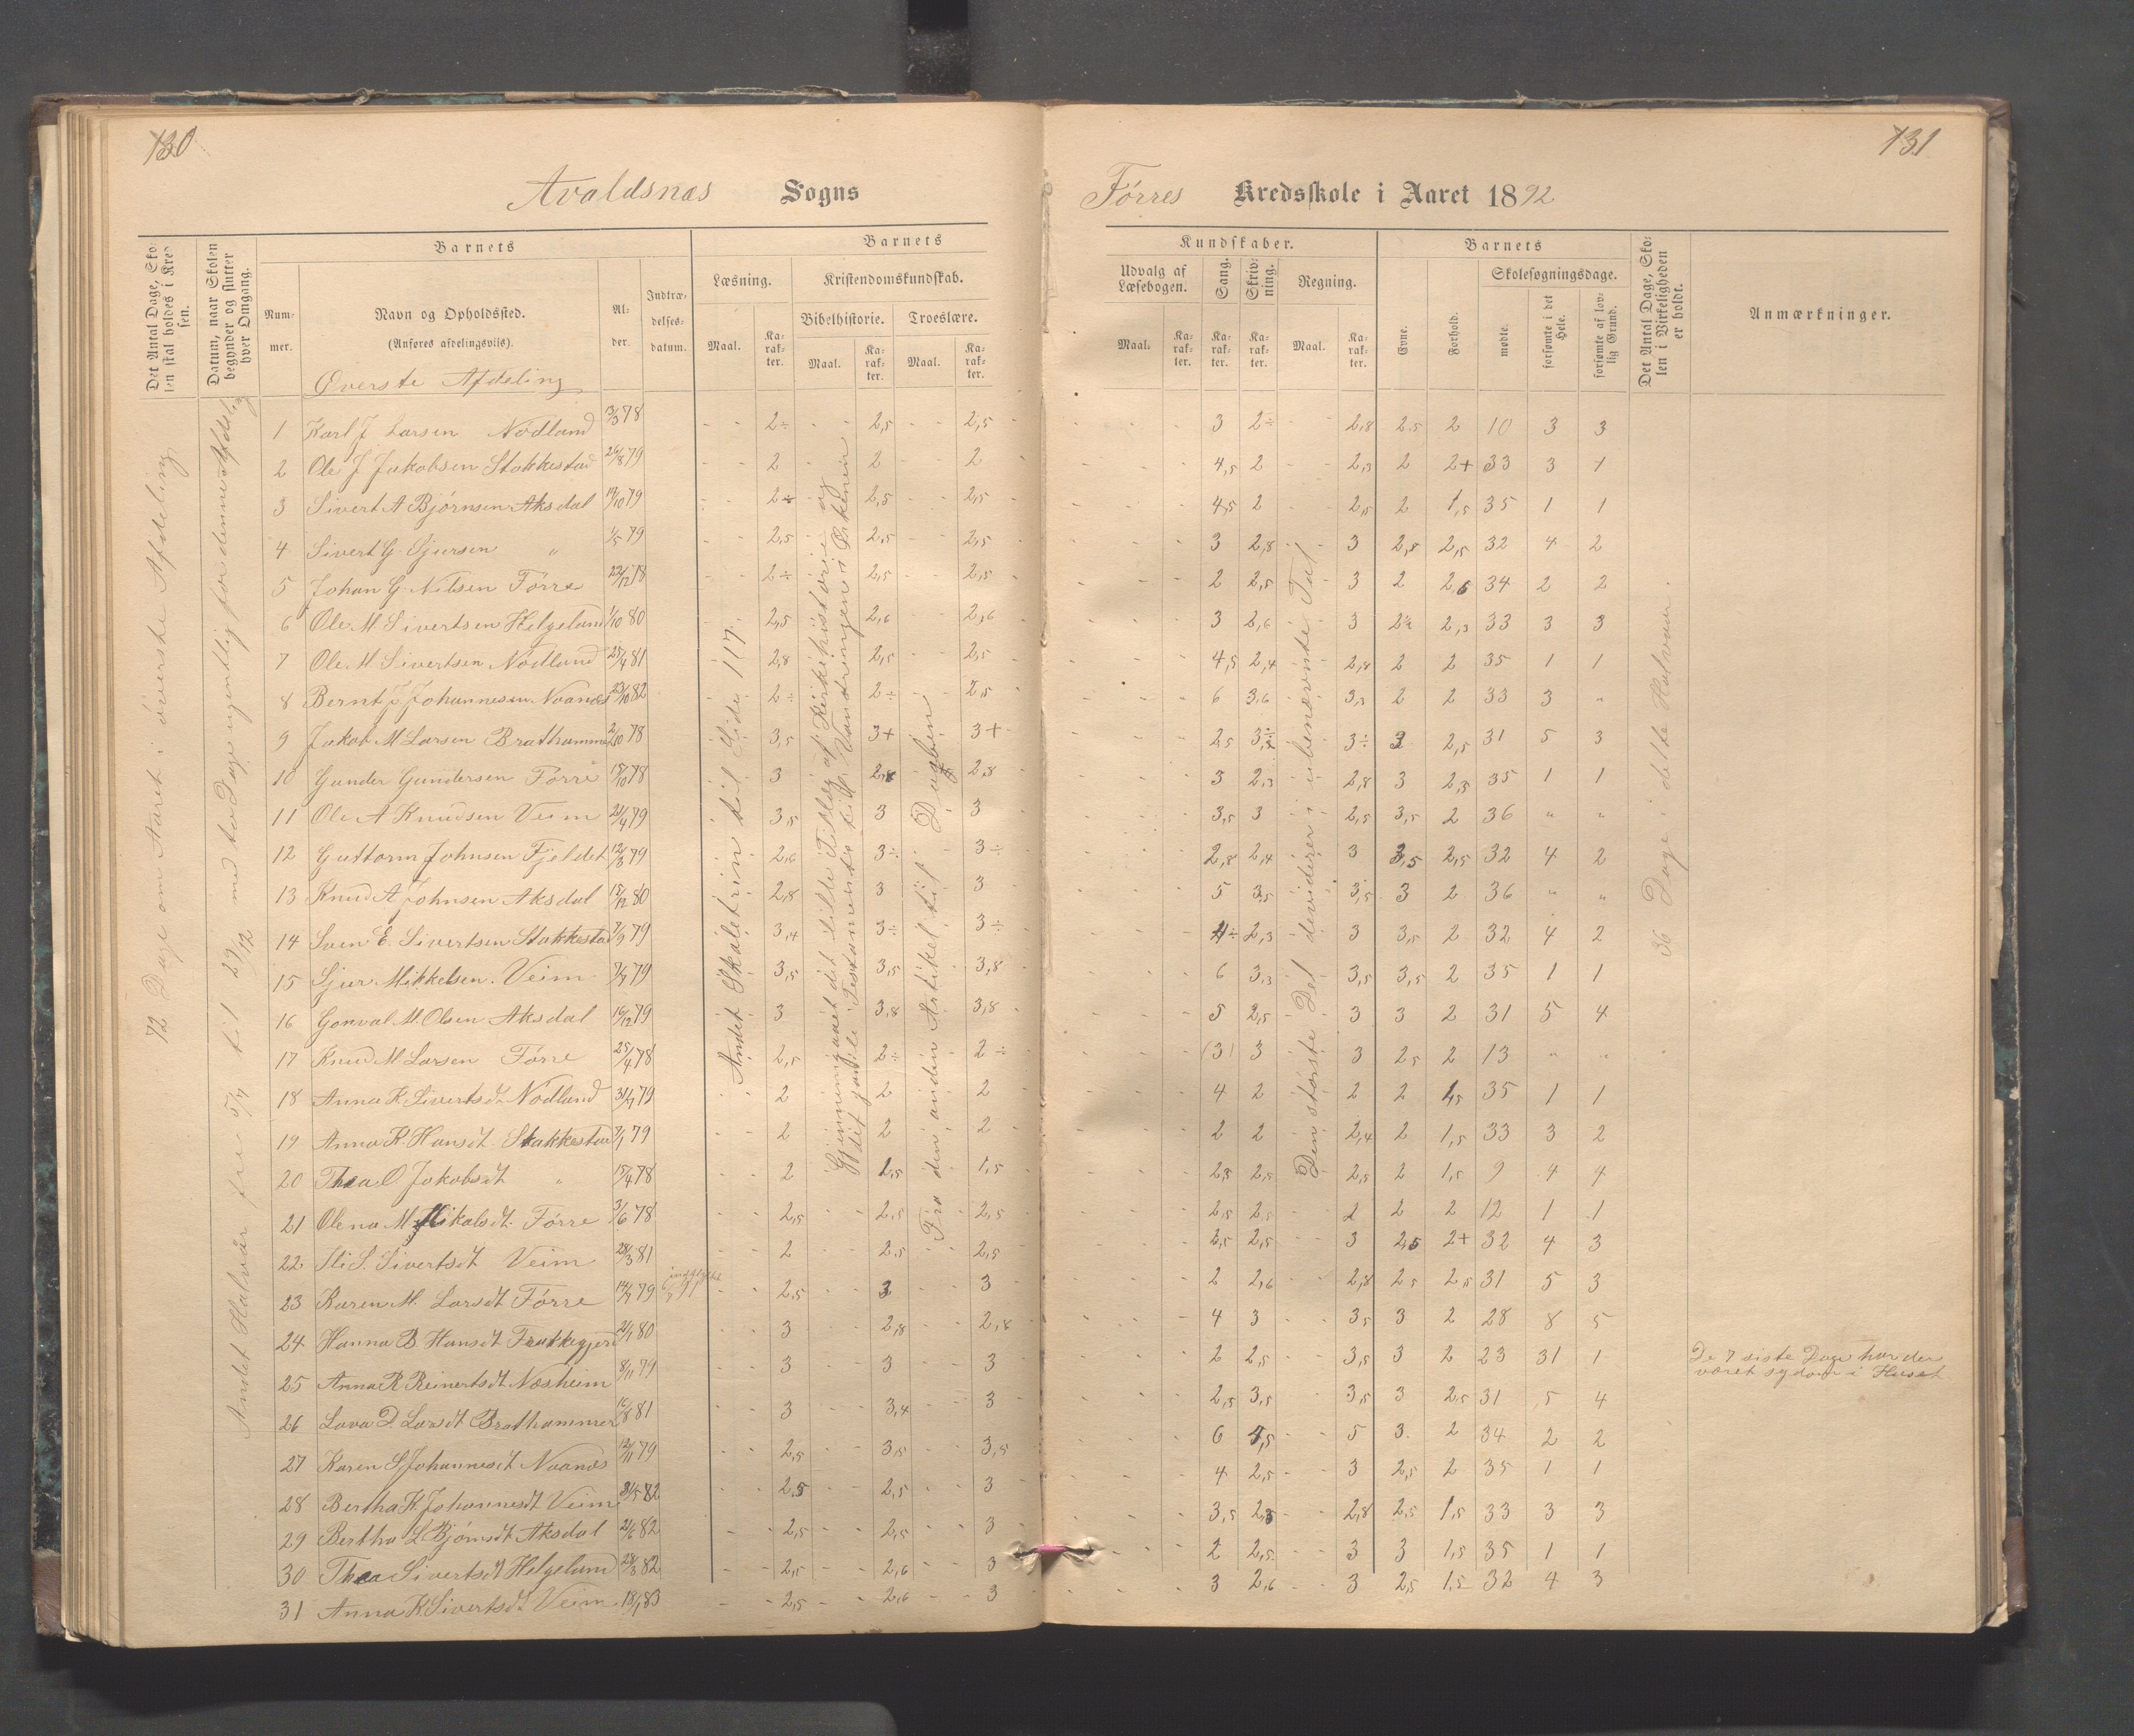 130
131
Avaldsnæs Sogns
Førres Kredsskole i Aaret 1892
Det Antal Dage, Skolen skal holdes i Kredsen.
Datum, naar Skolen begynder og slutter hver Omgang.
Barnets
Nummer.
Navn og Opholdssted.
(Anføres afdelingsvis).
Alder.
Indtrædelsesdatum.
Barnets
Læsning.
Kristendomskundskab.
Bibelhistorie.
Troeslære.
Maal.
Karakter.
Maal.
Karakter.
Maal.
Karakter.
Kundskaber.
Udvalg af Læsebogen.
Sang.
Skrivning.
Regning.
Maal.
Karakter.
Karakter.
Karakter.
Maal.
Karakter.
Barnets
Evne.
Forhold.
Skolesøgningsdage.
mødte.
forsømte i det Hele.
forsømte af lovlig Grund.
Det Antal Dage, Skolen i Virkeligheden er holdt.
Anmærkninger.
Øverste Afdeling
72 Dage om Aaret i øverste Afdeling
Andet Skoletrin til Side 117.
Fra den anden Artikel til Daaben
36 Dage i dette Halvaar.
1 Karl J Larsen Nødland 13/3 78 2÷ 2,5 2,5 3 2÷ 2,8 2,5 2 10 3 3
2 Ole J Jakobsen Stakkestad 26/8 79 2 2 2 4,5 2 2,3 2 2+ 33 3 1
3 Sivert A Bjørnsen Aksdal 19/10 79 2÷ 2,5 2,5 4,5 2 2,5 2 1,5 35 1 1
4 Sivert G. Sjursen " 1/5 79 2,5 2,5 2,5 3 2,8 3 2,8 2,5 32 4 2
5 Johan G. Nilsen Førre 23/12 78 2÷ 2,5 2,5 2 2,5 3 2 2,5 34 2 2
6 Ole M Sivertsen Helgeland 1/10 80 2,5 2,6 2,6 3 2,6 3 2,3 33 3 3
7 Ole M. Sivertsen Nødland 25/4 81 2,8 2,5 2,5 4,5 2,4 2,8 2 2 35 1 1
8 Bernt J Johannesen Naanæs 23/10 82 2÷ 2÷ 2,5 6 3,6 3,3 2 2 33 3 "
9 Jakob M Larsen Brathammer 2/10 78 3,5 3+ 3+ 2,5 3÷ 3 2,5 31 5 3
10 Gunder Gundersen Førre 15/10 78 3 2,8 2,8 3 2,3 2,8 3 2,5 35 1 1
11 Ole A Knudsen Veim 21/4 79 3,5 3 3 3,5 3 2,5 3,5 2 36 " "
12 Guttorm Johnsen Fjeldet 12/3 79 2,6 3÷ 3÷ 2,8 2,4 3 3,5 2,5 32 4 2
13 Knud A Johnsen Aksdal 15/12 80 2,8 3 3 5 3,5 3,5 3 2 36 " "
14 Sven E. Sivertsen Stakkestad 7/9 79 3,4 3÷ 3÷ 4÷ 2,3 3 3,5 2 32 4 2
15 Sjur Mikkelsen. Veim 7/7 79 3,5 3,5 3,8 6 3,3 3,5 3,5 2 35 1 1
16 Gonval M. Olsen Aksdal 16/12 79 3 3,8 3,8 5 2,5 3 3 2 31 5 4
17 Knud M Larsen Førre 25/4 78 2,5 2÷ 2÷ (3) 3 3 2,5 2 13 " "
18 Anna R. Sivertsdt Nødland 31/7 79 2 2 2 4 2 2 2 1,5 35 1 1
19 Anna K. Hansdt. Stakkestad 7/1 79 2 2 2 2 2 2,4 2 1,5 33 3 2
20 Thea O Jakobsdt " 15/4 78 2 1,5 1,5 2,5 2,5 2,5 2 1,5 9 4 4
21 Olena M. Mikalsdt. Førre 3/6 78 2,5 2,5 2,5 2,5 2,5 2 2 2 12 1 1
22 Sti S. Sivertsdt Veim 28/3 81 2 2,5 2,5 2,5 2,5 3 2,5 2+ 32 4 3
23 Karen M. Larsdt Førre 14/7 79 2,5 3 3 2 2,6 2,8 2,5 2,5 31 5 3
24 Hanna B Hansdt Frakkagjerd 21/1 80 3 2,8 2,8 4 3 3,5 3 2 28 8 5
25 Anna R Reinertsdt Næsheim 8/11 79 3 3 3 2 2,5 3,5 3 2 23 31 1 De 7 siste Dage har der været sygdom i Huset
26 Lava D. Larsdt Brathammer 16/8 81 3 3,4 3 2,5 3,5 3,5 3 2,5 31 5 4
27 Karen S Johannesdt Naanæs 12/11 79 2,5 3,5 3,5 6 4,5 5 3 2 34 2 2
28 Bertha K. Johannesdt Veim 31/5 82 2,5 2,5 3 4 2,5 3 2,5 2 35 1 1
29 Bertha L Bjørnsdt Aksdal 21/6 82 2,5 2,5 3 3,5 2,5 2,8 2,5 1,5 33 3 3
30 Thea Sivertsdt Helgeland 28/8 82 2,5 2,6 3 2 2,5 3 3 1,5 35 1 1
31 Anna K. Sivertsdt Veim 18/1 83 2,5 2,6 3 3 2,6 3 2,5 1,5 32 4 3